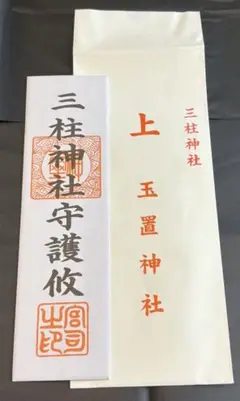 三柱神社
上 玉置神社
三柱神社守護攸
宮司之印